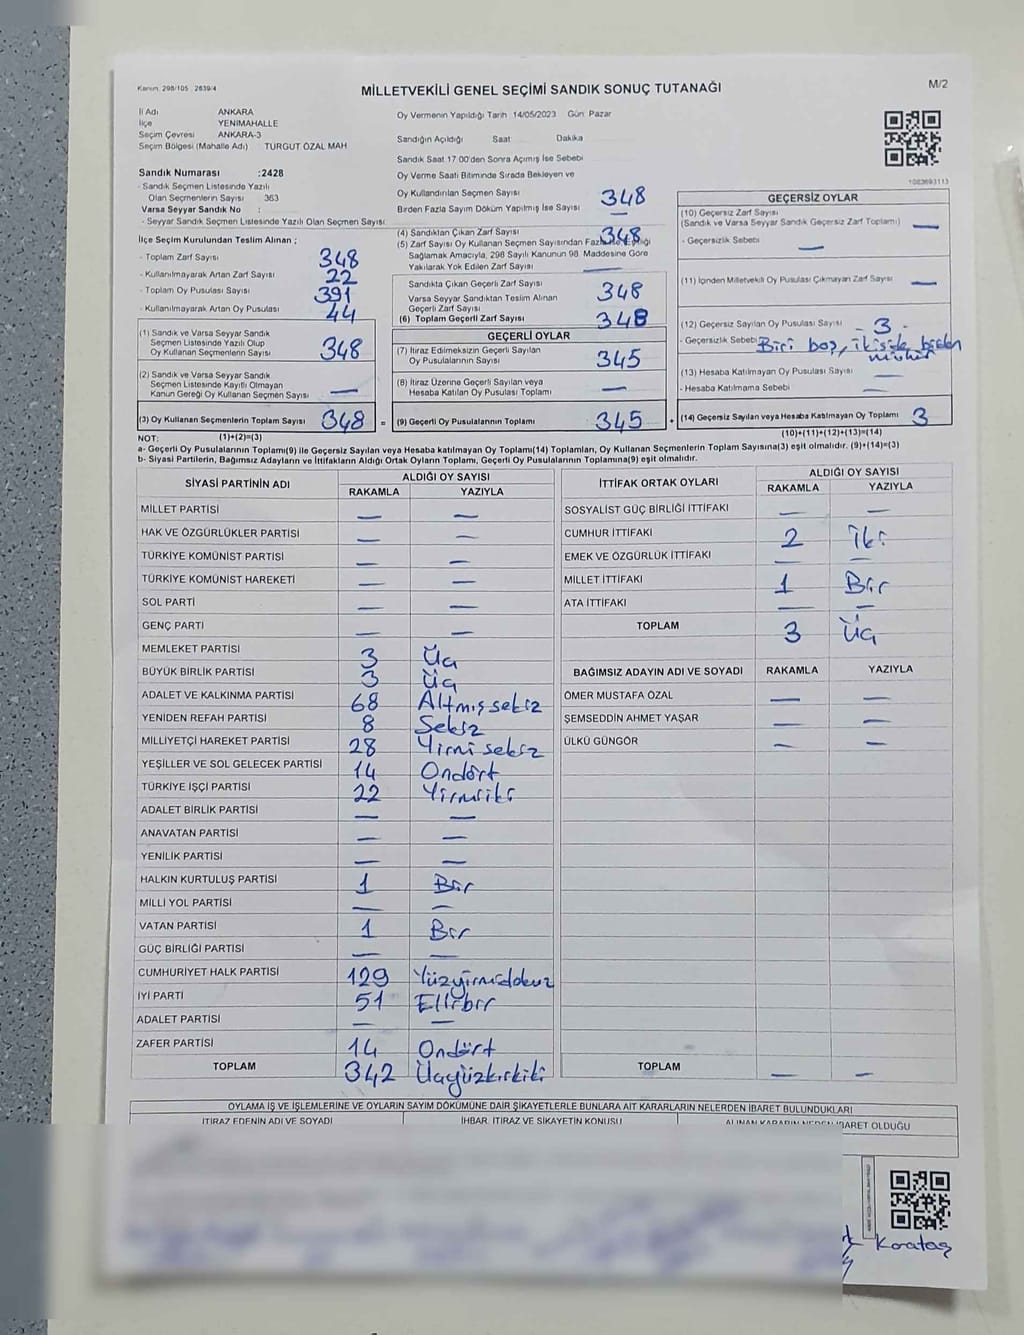 Kanun: 298/105, 2839/4
MİLLETVEKİLİ GENEL SEÇİMİ SANDIK SONUÇ TUTANAĞI
M/2
İl Adı ANKARA
İlçe YENİMAHALLE
Seçim Çevresi ANKARA-3
Seçim Bölgesi (Mahalle Adı) TURGUT ÖZAL MAH
Oy Vermenin Yapıldığı Tarih 14/05/2023 Gün: Pazar
Sandığın Açıldığı Saat Dakika
Sandık Saat 17:00'den Sonra Açımış İse Sebebi
Oy Verme Saati Bitiminde Sırada Bekleyen ve
Oy Kullandırılan Seçmen Sayısı 348
Birden Fazla Sayım Döküm Yapılmış İse Sayısı —
1083693113
Sandık Numarası :2428
- Sandık Seçmen Listesinde Yazılı
Olan Seçmenlerin Sayısı 363
Varsa Seyyar Sandık No :
- Seyyar Sandık Seçmen Listesinde Yazılı Olan Seçmen Sayısı:
İlçe Seçim Kurulundan Teslim Alınan ;
- Toplam Zarf Sayısı 348
- Kullanılmayarak Artan Zarf Sayısı 22
- Toplam Oy Pusulası Sayısı 391
- Kullanılmayarak Artan Oy Pusulası 44
(1) Sandık ve Varsa Seyyar Sandık
Seçmen Listesinde Yazılı Olup
Oy Kullanan Seçmenlerin Sayısı 348
(2) Sandık ve Varsa Seyyar Sandık
Seçmen Listesinde Kayıtlı Olmayan
Kanun Gereği Oy Kullanan Seçmen Sayısı —
(3) Oy Kullanan Seçmenlerin Toplam Sayısı 348
(1)+(2)=(3)
(4) Sandıktan Çıkan Zarf Sayısı 348
(5) Zarf Sayısı Oy Kullanan Seçmen Sayısından Fazla İse Eşitliği
Sağlamak Amacıyla, 298 Sayılı Kanunun 98. Maddesine Göre
Yakılarak Yok Edilen Zarf Sayısı —
Sandıkta Çıkan Geçerli Zarf Sayısı 348
Varsa Seyyar Sandıktan Teslim Alınan
Geçerli Zarf Sayısı
(6) Toplam Geçerli Zarf Sayısı 348
GEÇERLİ OYLAR
(7) İtiraz Edilmeksizin Geçerli Sayılan
Oy Pusulalarının Sayısı 345
(8) İtiraz Üzerine Geçerli Sayılan veya
Hesaba Katılan Oy Pusulası Toplamı —
= (9) Geçerli Oy Pusulalarının Toplamı 345
GEÇERSİZ OYLAR
(10) Geçersiz Zarf Sayısı
(Sandık ve Varsa Seyyar Sandık Geçersiz Zarf Toplamı) —
- Geçersizlik Sebebi —
(11) İçinden Milletvekili Oy Pusulası Çıkmayan Zarf Sayısı —
(12) Geçersiz Sayılan Oy Pusulası Sayısı - 3 -
- Geçersizlik Sebebi Biri boş, ikisinde birden
mühür
(13) Hesaba Katılmayan Oy Pusulası Sayısı —
- Hesaba Katılmama Sebebi —
+ (14) Geçersiz Sayılan veya Hesaba Katılmayan Oy Toplamı 3
(10)+(11)+(12)+(13)=(14)
NOT:
a- Geçerli Oy Pusulalarının Toplamı(9) ile Geçersiz Sayılan veya Hesaba katılmayan Oy Toplamı(14) Toplamları, Oy Kullanan Seçmenlerin Toplam Sayısına(3) eşit olmalıdır. (9)+(14)=(3)
b- Siyasi Partilerin, Bağımsız Adayların ve İttifakların Aldığı Ortak Oyların Toplamı, Geçerli Oy Pusulalarının Toplamına(9) eşit olmalıdır.
SİYASİ PARTİNİN ADI ALDIĞI OY SAYISI
RAKAMLA YAZIYLA
MİLLET PARTİSİ — —
HAK VE ÖZGÜRLÜKLER PARTİSİ — —
TÜRKİYE KOMÜNİST PARTİSİ — —
TÜRKİYE KOMÜNİST HAREKETİ — —
SOL PARTİ — —
GENÇ PARTİ — —
MEMLEKET PARTİSİ 3 Üç
BÜYÜK BİRLİK PARTİSİ 3 Üç
ADALET VE KALKINMA PARTİSİ 68 Altmışsekiz
YENİDEN REFAH PARTİSİ 8 Sekiz
MİLLİYETÇİ HAREKET PARTİSİ 28 Yirmi sekiz
YEŞİLLER VE SOL GELECEK PARTİSİ 14 Ondört
TÜRKİYE İŞÇİ PARTİSİ 22 Yirmiiki
ADALET BİRLİK PARTİSİ — —
ANAVATAN PARTİSİ — —
YENİLİK PARTİSİ — —
HALKIN KURTULUŞ PARTİSİ 1 Bir
MİLLİ YOL PARTİSİ — —
VATAN PARTİSİ 1 Bir
GÜÇ BİRLİĞİ PARTİSİ — —
CUMHURİYET HALK PARTİSİ 129 Yüzyirmidokuz
İYİ PARTİ 51 Ellibir
ADALET PARTİSİ — —
ZAFER PARTİSİ 14 Ondört
TOPLAM 342 Üçyüzkırkiki
İTTİFAK ORTAK OYLARI ALDIĞI OY SAYISI
RAKAMLA YAZIYLA
SOSYALİST GÜÇ BİRLİĞİ İTTİFAKI — —
CUMHUR İTTİFAKI 2 İki
EMEK VE ÖZGÜRLÜK İTTİFAKI — —
MİLLET İTTİFAKI 1 Bir
ATA İTTİFAKI — —
TOPLAM 3 Üç
BAĞIMSIZ ADAYIN ADI VE SOYADI RAKAMLA YAZIYLA
ÖMER MUSTAFA ÖZAL — —
ŞEMSEDDİN AHMET YAŞAR — —
ÜLKÜ GÜNGÖR — —
TOPLAM — —
OYLAMA İŞ VE İŞLEMLERİNE VE OYLARIN SAYIM DÖKÜMÜNE DAİR ŞİKAYETLERLE BUNLARA AİT KARARLARIN NELERDEN İBARET BULUNDUKLARI
İTİRAZ EDENİN ADI VE SOYADI İHBAR, İTİRAZ VE ŞİKAYETİN KONUSU ALINAN KARARIN NEDEN İBARET OLDUĞU
Karataş